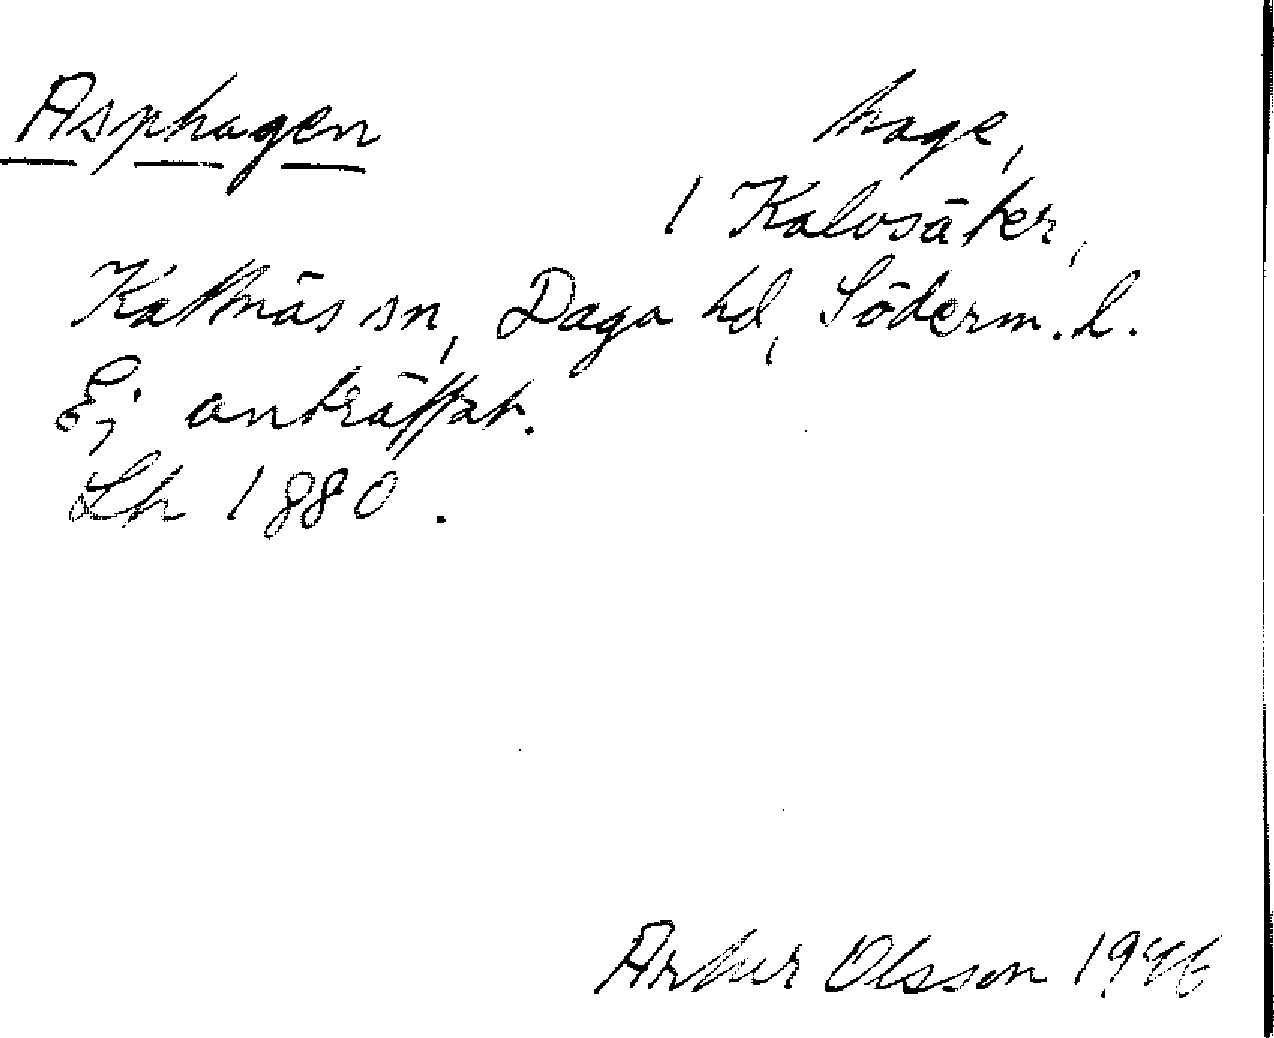 Asphagen hage,
1 Kalvsäker,
Kattnäs sn, Daga hd, Söderm. l.
Ej anträffat.
Lh 1880.
Artur Olsson 1946